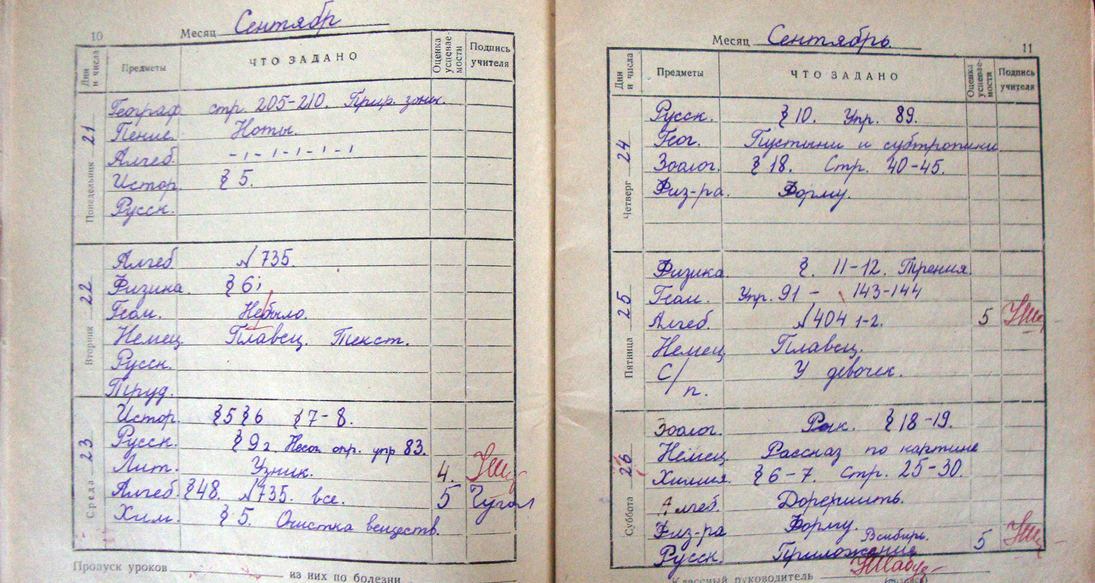 10
Месяц Сентябр
Дни и числа Предметы ЧТО ЗАДАНО Оценка успевае-мости Подпись учителя
Понедельник 21
Географ. стр. 205-210. Прир. зоны.
Пение. Ноты.
Алгеб. -1-1-1-1-1
Истор. § 5.
Русск.
Вторник 22
Алгеб. №735.
Физика. § 6;
Геом. Небыло.
Немец. Плавец. Текст.
Русск.
Труд.
Среда 23
Истор. §5 § 6 §7-8.
Русск. § 9 г. упр 83.
Лит. Узник. 4.
Алгеб. §48. №735. все. 5
Хим. § 5. Очистка веществ.
Пропуск уроков из них по болезни
Месяц Сентябрь
11
Дни и числа Предметы ЧТО ЗАДАНО Оценка успевае-мости Подпись учителя
Четверг 24
Русск. § 10. Упр. 89.
Геог. Пустыни и субтропики
Зоолог. § 18. Стр. 40-45.
Физ-ра. Форму.
Пятница 25
Физика. §. 11-12. Трения.
Геом. Упр. 91 - 143-144
Алгеб. №404 1-2. 5
Немец Плавец.
С/п. У девочек.
Суббота 26
Зоолог. Рак. § 18-19.
Немец. Рассказ по картине
Химия § 6-7. Стр. 25-30.
Алгеб. Дорешить.
Физ-ра Форму.
Русск. Приложение 5
Классный руководитель